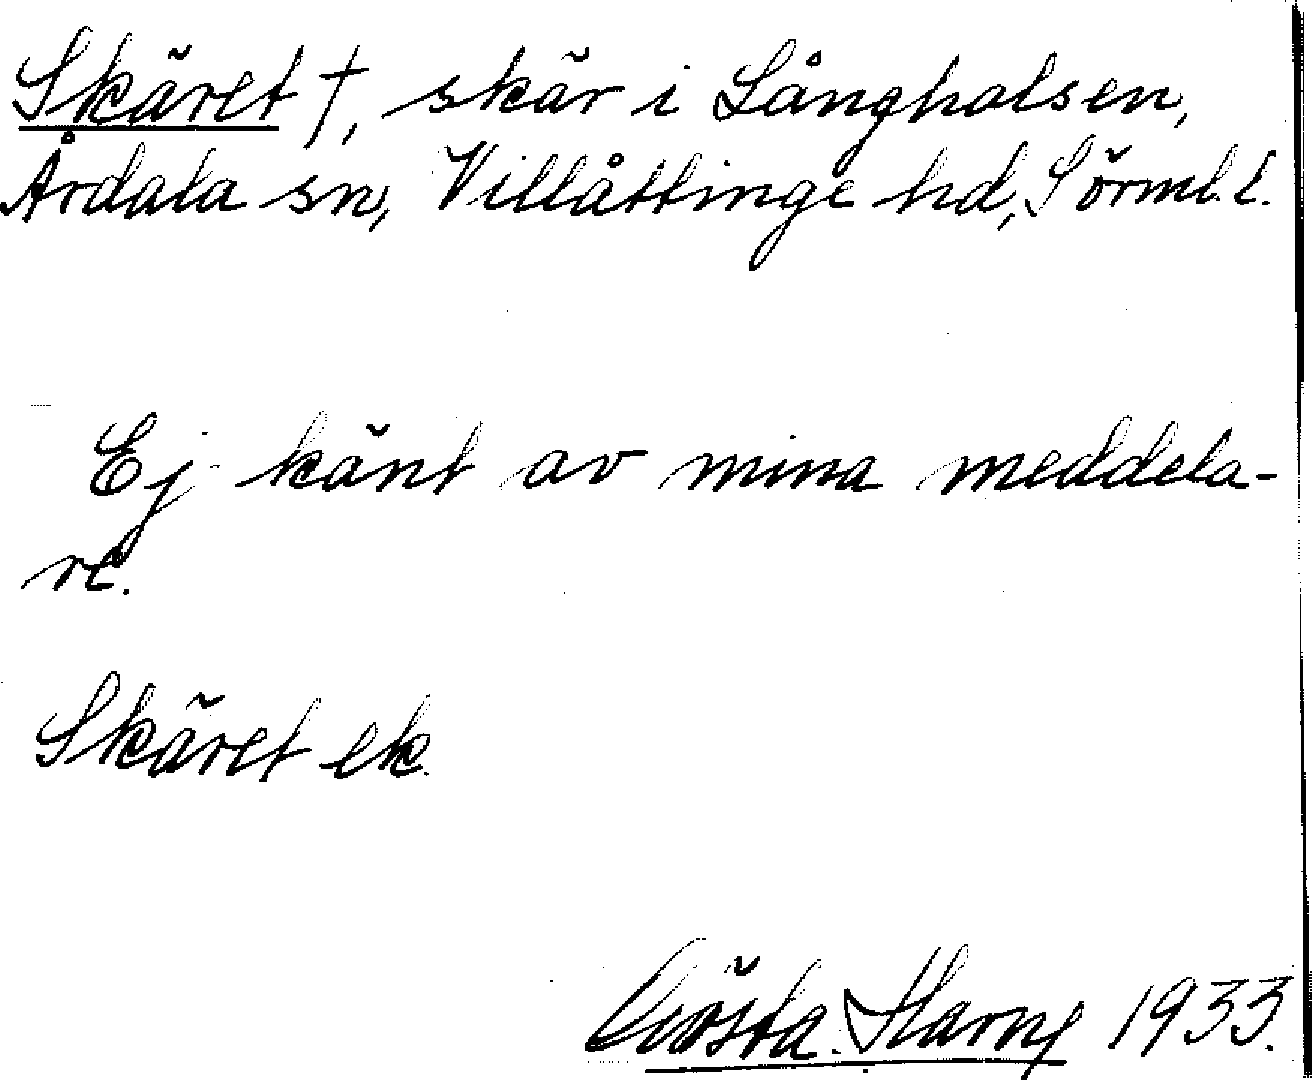 Skäret †, skär i Långhalsen,
Årdala sn, Villåttinge hd, Sörml. l.
Ej känt av mina meddela-
re.
Skäret ek.
Gösta Harne 1933.